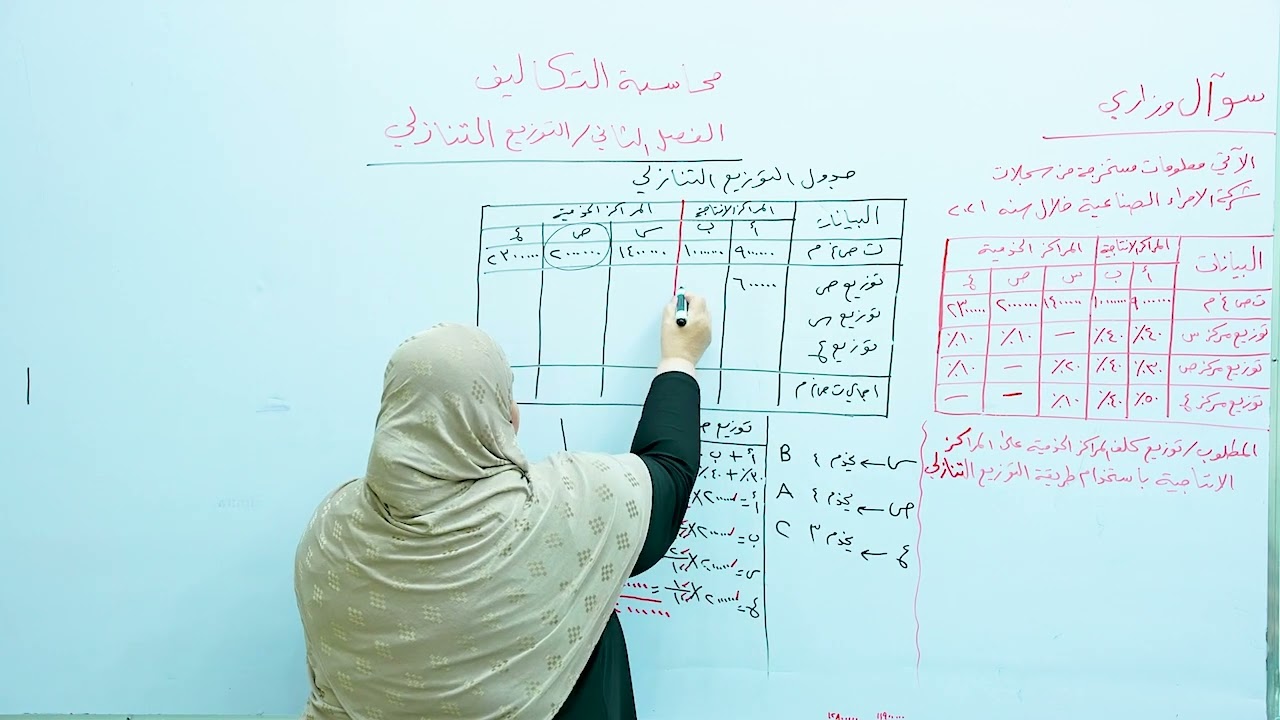 محاسبة التكاليف
الفصل الثاني/ التوزيع المتنازلي
سوآل وزاري
الآتي معلومات مستخرجة من سجلات
شركة الاصراء الصناعية خلال سنه ٢٠٢١
البيانات المراكز الانتاجية المراكز الخدمية
أ ب س ص ع
ت ص غ م ٩٠٠٠٠٠ ١٠٠٠٠٠٠ ١٤٠٠٠٠٠ ٢٠٠٠٠٠٠ ٢٣٠٠٠٠٠
توزيع مركز س ٤٠٪ ٤٠٪ — ١٠٪ ١٠٪
توزيع مركز ص ٣٠٪ ٤٠٪ ٢٠٪ — ٨٠٪
توزيع مركز ع ٥٠٪ ٤٠٪ ١٠٪ — —
المطلوب/ توزيع كلف المراكز الخدمية على المراكز
الانتاجية باستخدام طريقة التوزيع التنازلي
جدول التوزيع التنازلي
البيانات المراكز الانتاجية المراكز الخدمية
أ ب س ص ع
ت ص غ م ٩٠٠٠٠٠ ١٠٠٠٠٠٠ ١٤٠٠٠٠٠ ٢٠٠٠٠٠٠ ٢٣٠٠٠٠٠
توزيع ص ٦٠٠٠٠٠
توزيع س
توزيع ع
اجمالي ت ص غ م
س ← يخدم ٤ B
ص ← يخدم ٤ A
ع ← يخدم ٣ C
توزيع
أ + ب